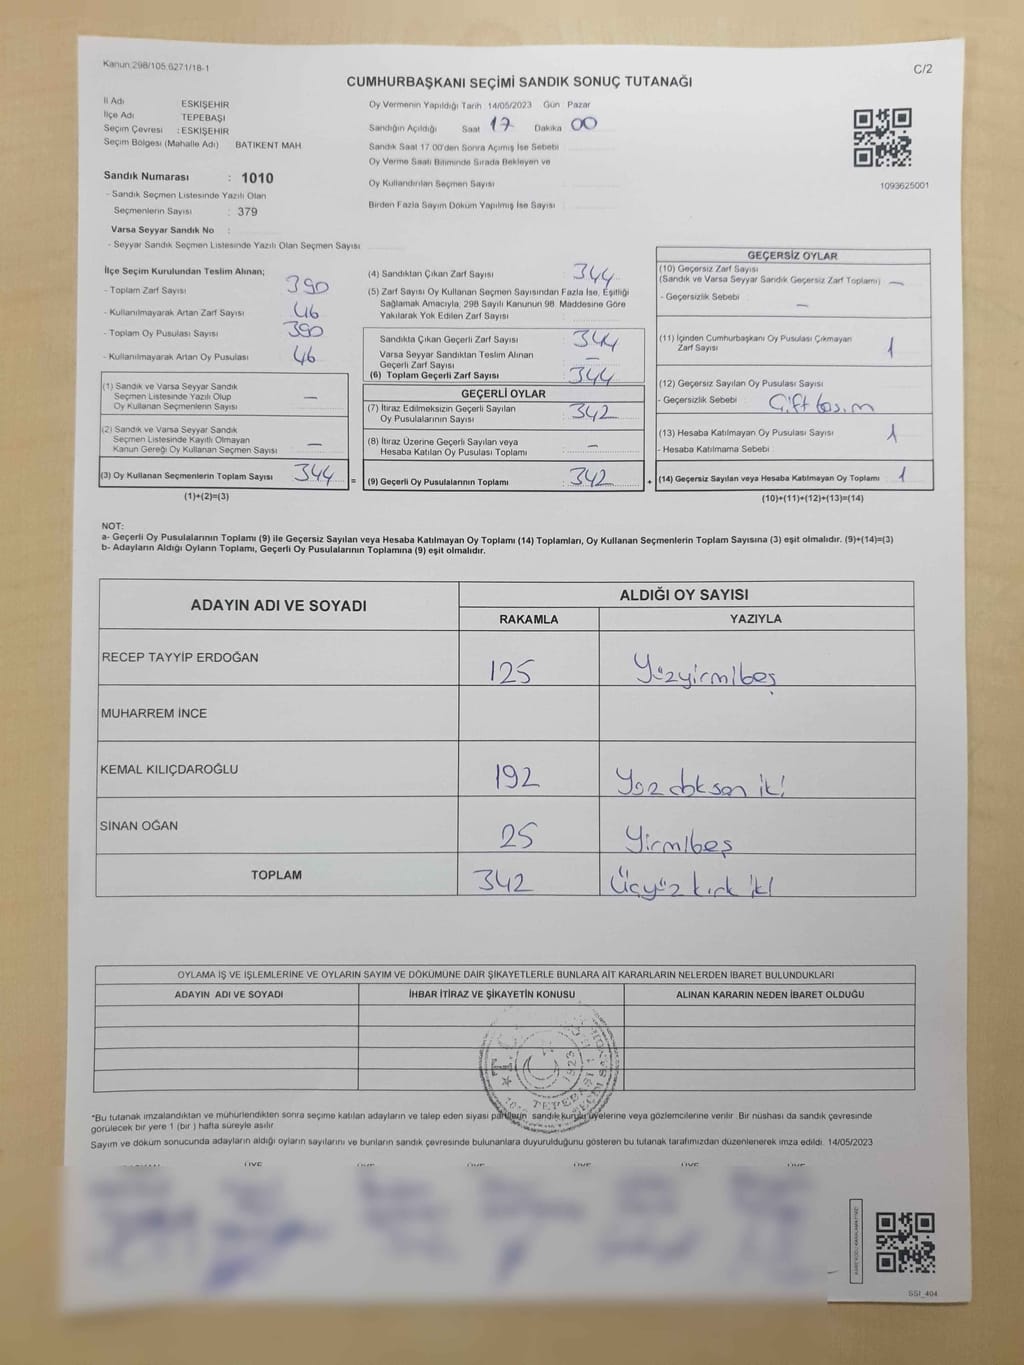 Kanun:298/105 6271/18-1
C/2
CUMHURBAŞKANI SEÇİMİ SANDIK SONUÇ TUTANAĞI
İl Adı ESKİŞEHİR
İlçe Adı TEPEBAŞI
Seçim Çevresi : ESKİŞEHİR
Seçim Bölgesi (Mahalle Adı) BATIKENT MAH.
Sandık Numarası : 1010
- Sandık Seçmen Listesinde Yazılı Olan
Seçmenlerin Sayısı : 379
Varsa Seyyar Sandık No :
- Seyyar Sandık Seçmen Listesinde Yazılı Olan Seçmen Sayısı
Oy Vermenin Yapıldığı Tarih 14/05/2023 Gün Pazar
Sandığın Açıldığı Saat 17 Dakika 00
Sandık Saat 17.00'den Sonra Açımış İse Sebebi
Oy Verme Saati Bitiminde Sırada Bekleyen ve
Oy Kullandırılan Seçmen Sayısı
Birden Fazla Sayım Döküm Yapılmış İse Sayısı
1093625001
İlçe Seçim Kurulundan Teslim Alınan;
- Toplam Zarf Sayısı 390
- Kullanılmayarak Artan Zarf Sayısı 46
- Toplam Oy Pusulası Sayısı 390
- Kullanılmayarak Artan Oy Pusulası 46
(1) Sandık ve Varsa Seyyar Sandık
Seçmen Listesinde Yazılı Olup
Oy Kullanan Seçmenlerin Sayısı —
(2) Sandık ve Varsa Seyyar Sandık
Seçmen Listesinde Kayıtlı Olmayan
Kanun Gereği Oy Kullanan Seçmen Sayısı —
(3) Oy Kullanan Seçmenlerin Toplam Sayısı 344 =
(1)+(2)=(3)
(4) Sandıktan Çıkan Zarf Sayısı 344
(5) Zarf Sayısı Oy Kullanan Seçmen Sayısından Fazla İse, Eşitliği
Sağlamak Amacıyla, 298 Sayılı Kanunun 98. Maddesine Göre
Yakılarak Yok Edilen Zarf Sayısı
Sandıkta Çıkan Geçerli Zarf Sayısı 344
Varsa Seyyar Sandıktan Teslim Alınan
Geçerli Zarf Sayısı —
(6) Toplam Geçerli Zarf Sayısı 344
GEÇERLİ OYLAR
(7) İtiraz Edilmeksizin Geçerli Sayılan
Oy Pusulalarının Sayısı 342
(8) İtiraz Üzerine Geçerli Sayılan veya
Hesaba Katılan Oy Pusulası Toplamı —
(9) Geçerli Oy Pusulalarının Toplamı : 342 +
GEÇERSİZ OYLAR
(10) Geçersiz Zarf Sayısı
(Sandık ve Varsa Seyyar Sandık Geçersiz Zarf Toplamı) —
- Geçersizlik Sebebi —
(11) İçinden Cumhurbaşkanı Oy Pusulası Çıkmayan
Zarf Sayısı 1
(12) Geçersiz Sayılan Oy Pusulası Sayısı
- Geçersizlik Sebebi Çift basım
(13) Hesaba Katılmayan Oy Pusulası Sayısı 1
- Hesaba Katılmama Sebebi
(14) Geçersiz Sayılan veya Hesaba Katılmayan Oy Toplamı 1
(10)+(11)+(12)+(13)=(14)
NOT:
a- Geçerli Oy Pusulalarının Toplamı (9) ile Geçersiz Sayılan veya Hesaba Katılmayan Oy Toplamı (14) Toplamları, Oy Kullanan Seçmenlerin Toplam Sayısına (3) eşit olmalıdır. (9)+(14)=(3)
b- Adayların Aldığı Oyların Toplamı, Geçerli Oy Pusulalarının Toplamına (9) eşit olmalıdır.
ADAYIN ADI VE SOYADI
ALDIĞI OY SAYISI
RAKAMLA YAZIYLA
RECEP TAYYİP ERDOĞAN 125 Yüzyirmibeş
MUHARREM İNCE
KEMAL KILIÇDAROĞLU 192 Yüz doksan iki
SİNAN OĞAN 25 Yirmibeş
TOPLAM 342 Üçyüz kırk iki
OYLAMA İŞ VE İŞLEMLERİNE VE OYLARIN SAYIM VE DÖKÜMÜNE DAİR ŞİKAYETLERLE BUNLARA AİT KARARLARIN NELERDEN İBARET BULUNDUKLARI
ADAYIN ADI VE SOYADI İHBAR İTİRAZ VE ŞİKAYETİN KONUSU ALINAN KARARIN NEDEN İBARET OLDUĞU
1923
TEPEBAŞI
*Bu tutanak imzalandıktan ve mühürlendikten sonra seçime katılan adayların ve talep eden siyasi partilerin sandık kurulu üyelerine veya gözlemcilerine verilir. Bir nüshası da sandık çevresinde
görülecek bir yere 1 (bir ) hafta süreyle asılır.
Sayım ve döküm sonucunda adayların aldığı oyların sayılarını ve bunların sandık çevresinde bulunanlara duyurulduğunu gösteren bu tutanak tarafımızdan düzenlenerek imza edildi. 14/05/2023
SSI_404